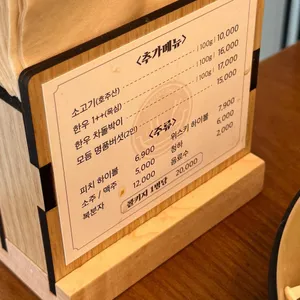 <추가메뉴>
소고기(호주산) 100g 10,000
한우 1++(목심) 100g 16,000
한우 차돌박이 100g 17,000
모듬 명품버섯(2인) 15,000
<주류>
피치 하이볼 6,900 위스키 하이볼 7,900
소주 / 맥주 5,000 청하 6,000
복분자 12,000 음료수 2,000
콜키지 1병당 20,000